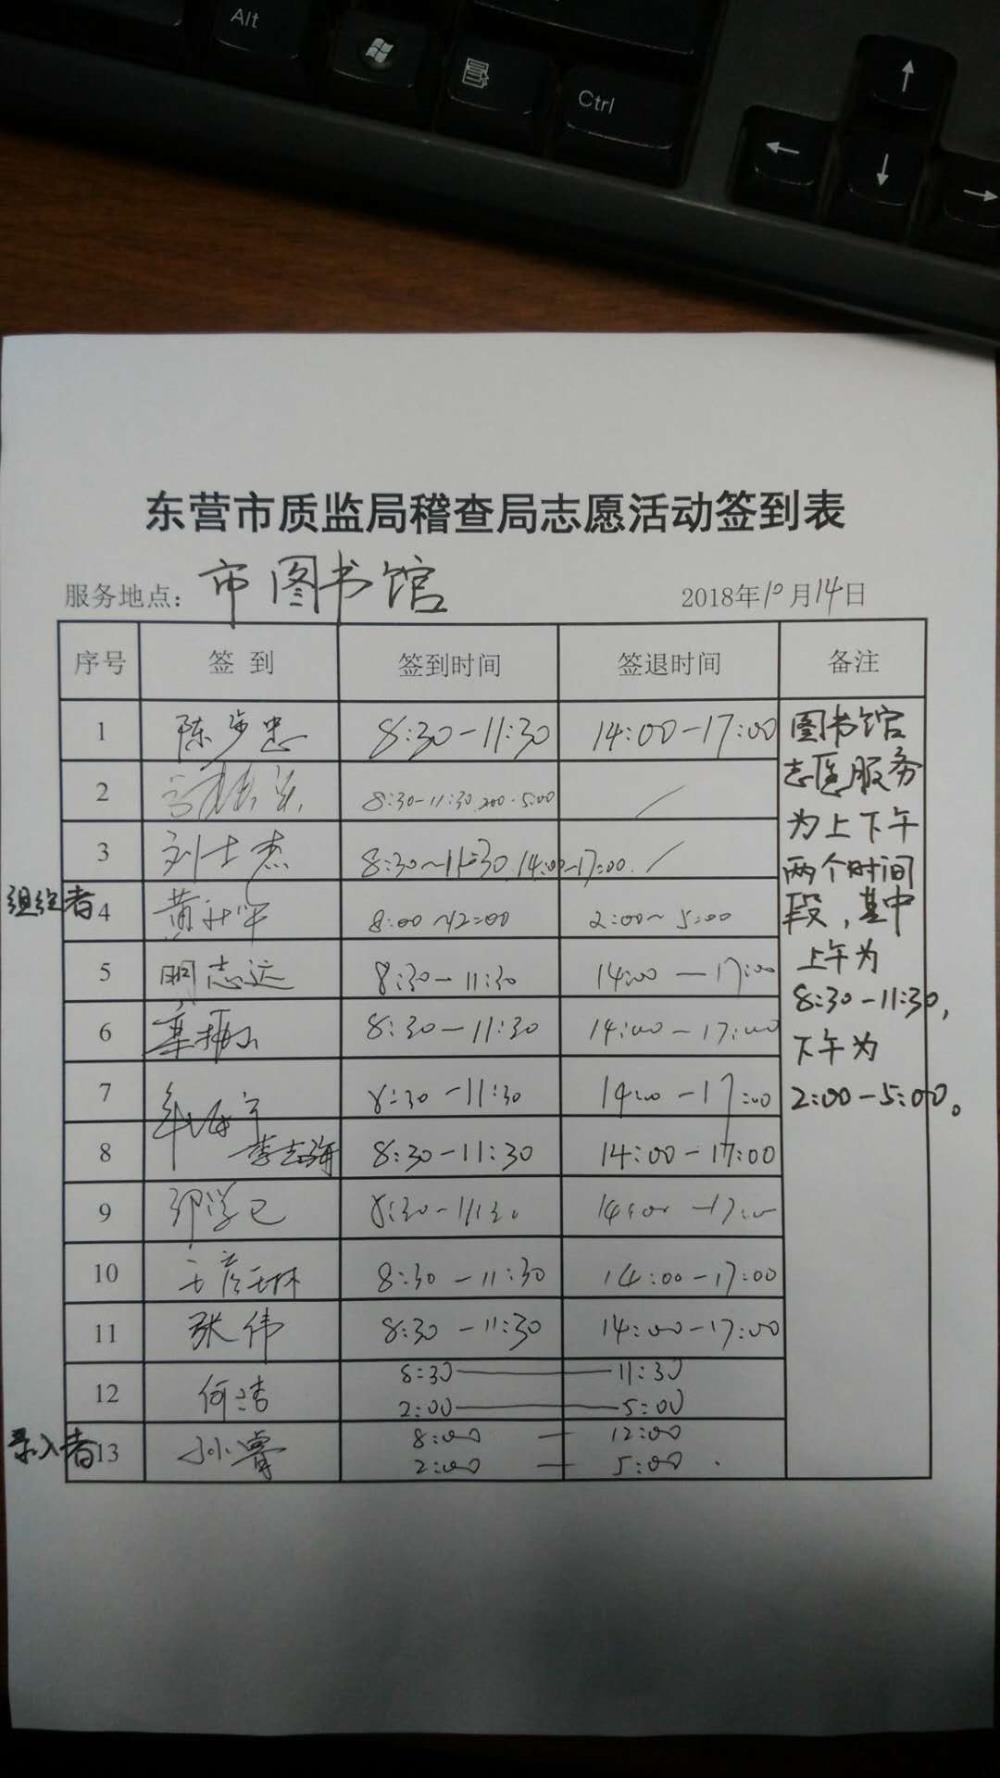 Alt
Ctrl
东营市质监局稽查局志愿活动签到表
服务地点：市图书馆 2018年10月14日
序号 签到 签到时间 签退时间 备注
1 陈步忠 8:30-11:30 14:00-17:00
2 8:30-11:30 2:00-5:00 /
3 刘士杰 8:30~11:30 14:00-17:00 /
组织者 4 8:00~12:00 2:00~5:00
5 明志远 8:30-11:30 14:00-17:00
6 8:30-11:30 14:00-17:00
7 8:30-11:30 14:00-17:00
8 李志强 8:30-11:30 14:00-17:00
9 8:30-11:30 14:00-17:00
10 王彦琳 8:30-11:30 14:00-17:00
11 张伟 8:30-11:30 14:00-17:00
12 何洁 8:30——11:30
2:00——5:00
录入者 13 孙睿 8:00—12:00
2:00—5:00.
图书馆
志愿服务
为上下午
两个时间
段，其中
上午为
8:30-11:30,
下午为
2:00-5:00。